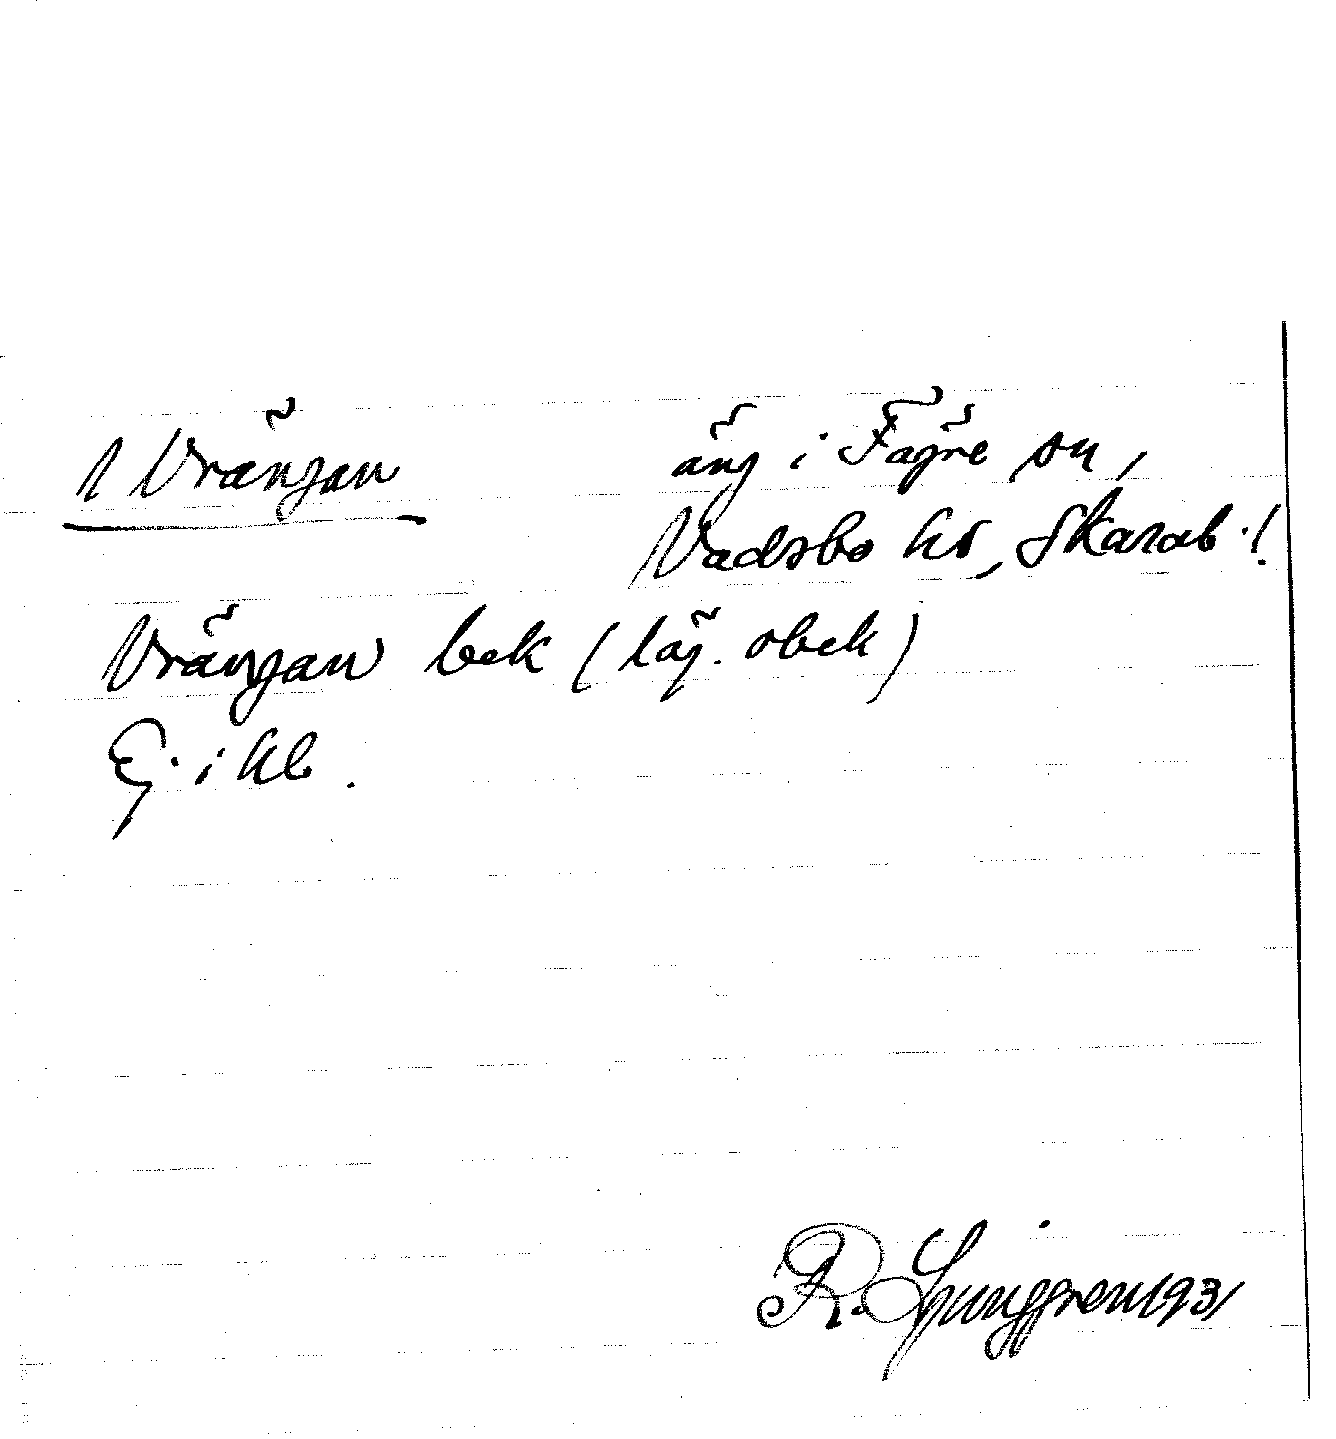 1 Vrängan äng i Fägre sn,
Vadsbo hd, Skarab. l.
Vrängan bek (läg. obek)
Ej i kb.
R. Ljunggren 1931